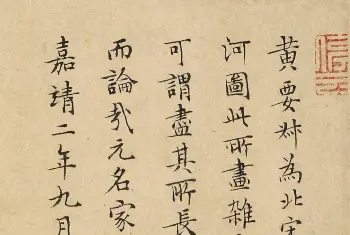 黄要叔為北宋
河圖此所畫雜
可謂盡其所長
而論哉元名家
嘉靖二年九月